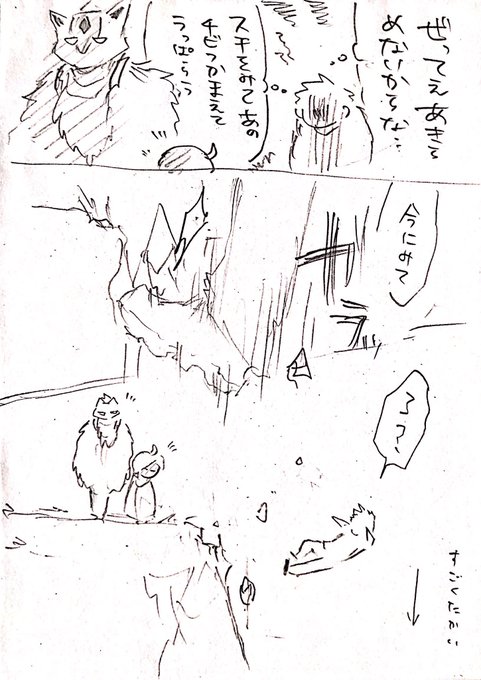 ぜってえあきら
めないからな…
スキをみてあの
チビつかまえて
うっぱらう
今にみて
ガラ
ろっ?
すごくたかい